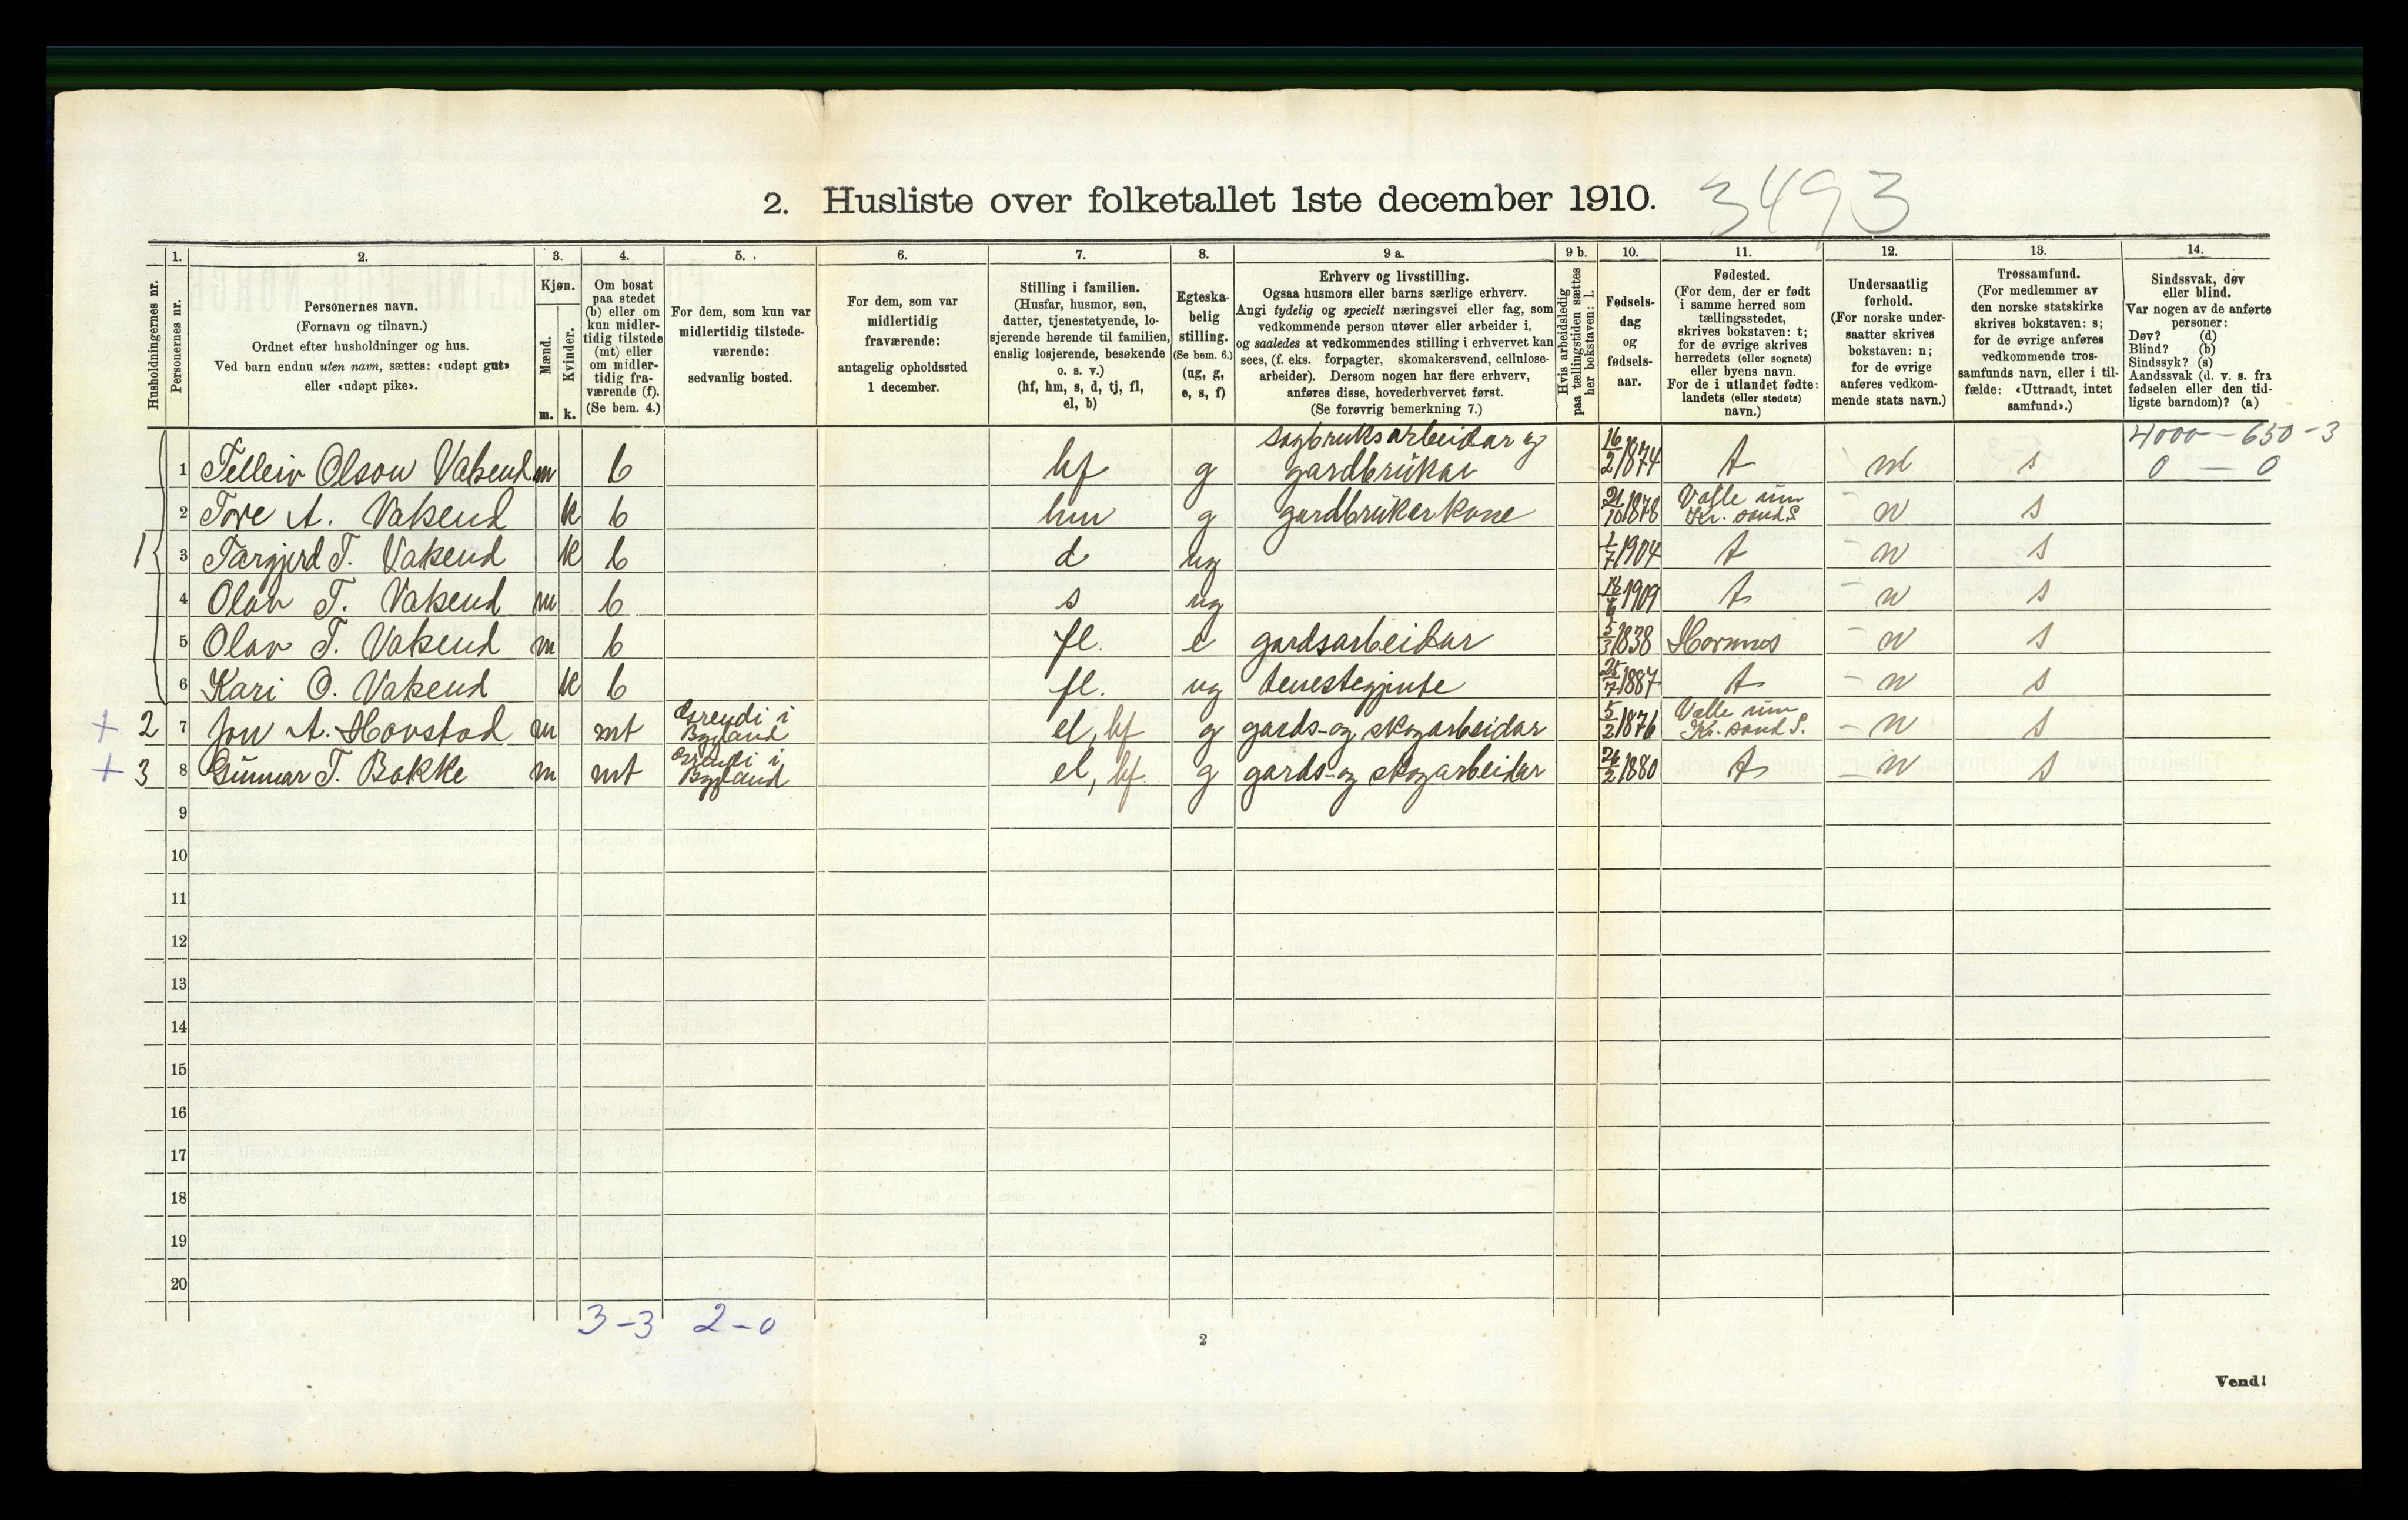 2. Husliste over folketallet 1ste december 1910. 3493
Husholdningernes nr.
1. Personernes nr.
2. Personernes navn.
(Fornavn og tilnavn.)
Ordnet efter husholdninger og hus.
Ved barn endnu uten navn, sættes: «udøpt gut»
eller «udøpt pike».
3. Kjøn.
Mænd. m.
Kvinder. k.
4. Om bosat
paa stedet
(b) eller om
kun midler-
tidig tilstede
(mt) eller
om midler-
tidig fra-
værende (f).
(Se bem. 4.)
5. For dem, som kun var
midlertidig tilstede-
værende:
sedvanlig bosted.
6. For dem, som var
midlertidig
fraværende:
antagelig opholdssted
1 december.
7. Stilling i familien.
(Husfar, husmor, søn,
datter, tjenestetyende, lo-
sjerende hørende til familien,
enslig losjerende, besøkende
o. s. v.)
(hf, hm, s, d, tj, fl,
el, b)
8. Egteska-
belig
stilling.
(Se bem. 6.)
(ug, g,
e, s, f)
9 a. Erhverv og livsstilling.
Ogsaa husmors eller barns særlige erhverv.
Angi tydelig og specielt næringsvei eller fag, som
vedkommende person utøver eller arbeider i,
og saaledes at vedkommendes stilling i erhvervet kan
sees, (f. eks. forpagter, skomakersvend, cellulose-
arbeider). Dersom nogen har flere erhverv,
anføres disse, hovederhvervet først.
(Se forøvrig bemerkning 7.)
9 b. Hvis arbeidsledig
paa tællingstiden sættes
her bokstaven: l.
10. Fødsels-
dag
og
fødsels-
aar.
11. Fødested.
(For dem, der er født
i samme herred som
tællingsstedet,
skrives bokstaven: t;
for de øvrige skrives
herredets (eller sognets)
eller byens navn.
For de i utlandet fødte:
landets (eller stedets)
navn.)
12. Undersaatlig
forhold.
(For norske under-
saatter skrives
bokstaven: n;
for de øvrige
anføres vedkom-
mende stats navn.)
13. Trossamfund.
(For medlemmer av
den norske statskirke
skrives bokstaven: s;
for de øvrige anføres
vedkommende tros-
samfunds navn, eller i til-
fælde: «Uttraadt, intet
samfund».)
14. Sindssvak, døv
eller blind.
Var nogen av de anførte
personer:
Døv? (d)
Blind? (b)
Sindssyk? (s)
Aandssvak (d. v. s. fra
fødselen eller den tid-
ligste barndom)? (a)
sagbruksarbeidar og 4000 – 650 – 3
1 Telleiv Olson Vatsend m b hf g gardbrukar 16/2 1874 t s 0 – 0
2 Tore A. Vatsend k b hm g gardbrukarkone 21/10 1878 Valle um Kr. sand S. n s
1 3 Targjerd T. Vatsend k b d ug 1/7 1904 t n s
4 Olav T. Vatsend m b s ug 1909 t n s
5 Olav T. Vatsend m b fl. e gardsarbeidar 5/3 1838 Hornnes n s
6 Kari O. Vatsend k b fl. ug tenestegjente 25/7 1887 t n s
+ 2 7 Jon A. Hovstad m mt i Bygland el, hf g gards- og skogarbeidar 5/2 1876 Valle um Kr. sand S. n s
+ 3 8 Gunnar T. Bakke m mt i Bygland el, hf g gards- og skogarbeidar 26/2 1880 t n s
9
10
11
12
13
14
15
16
17
18
19
20
3 – 3 2 – 0
2
Vend!